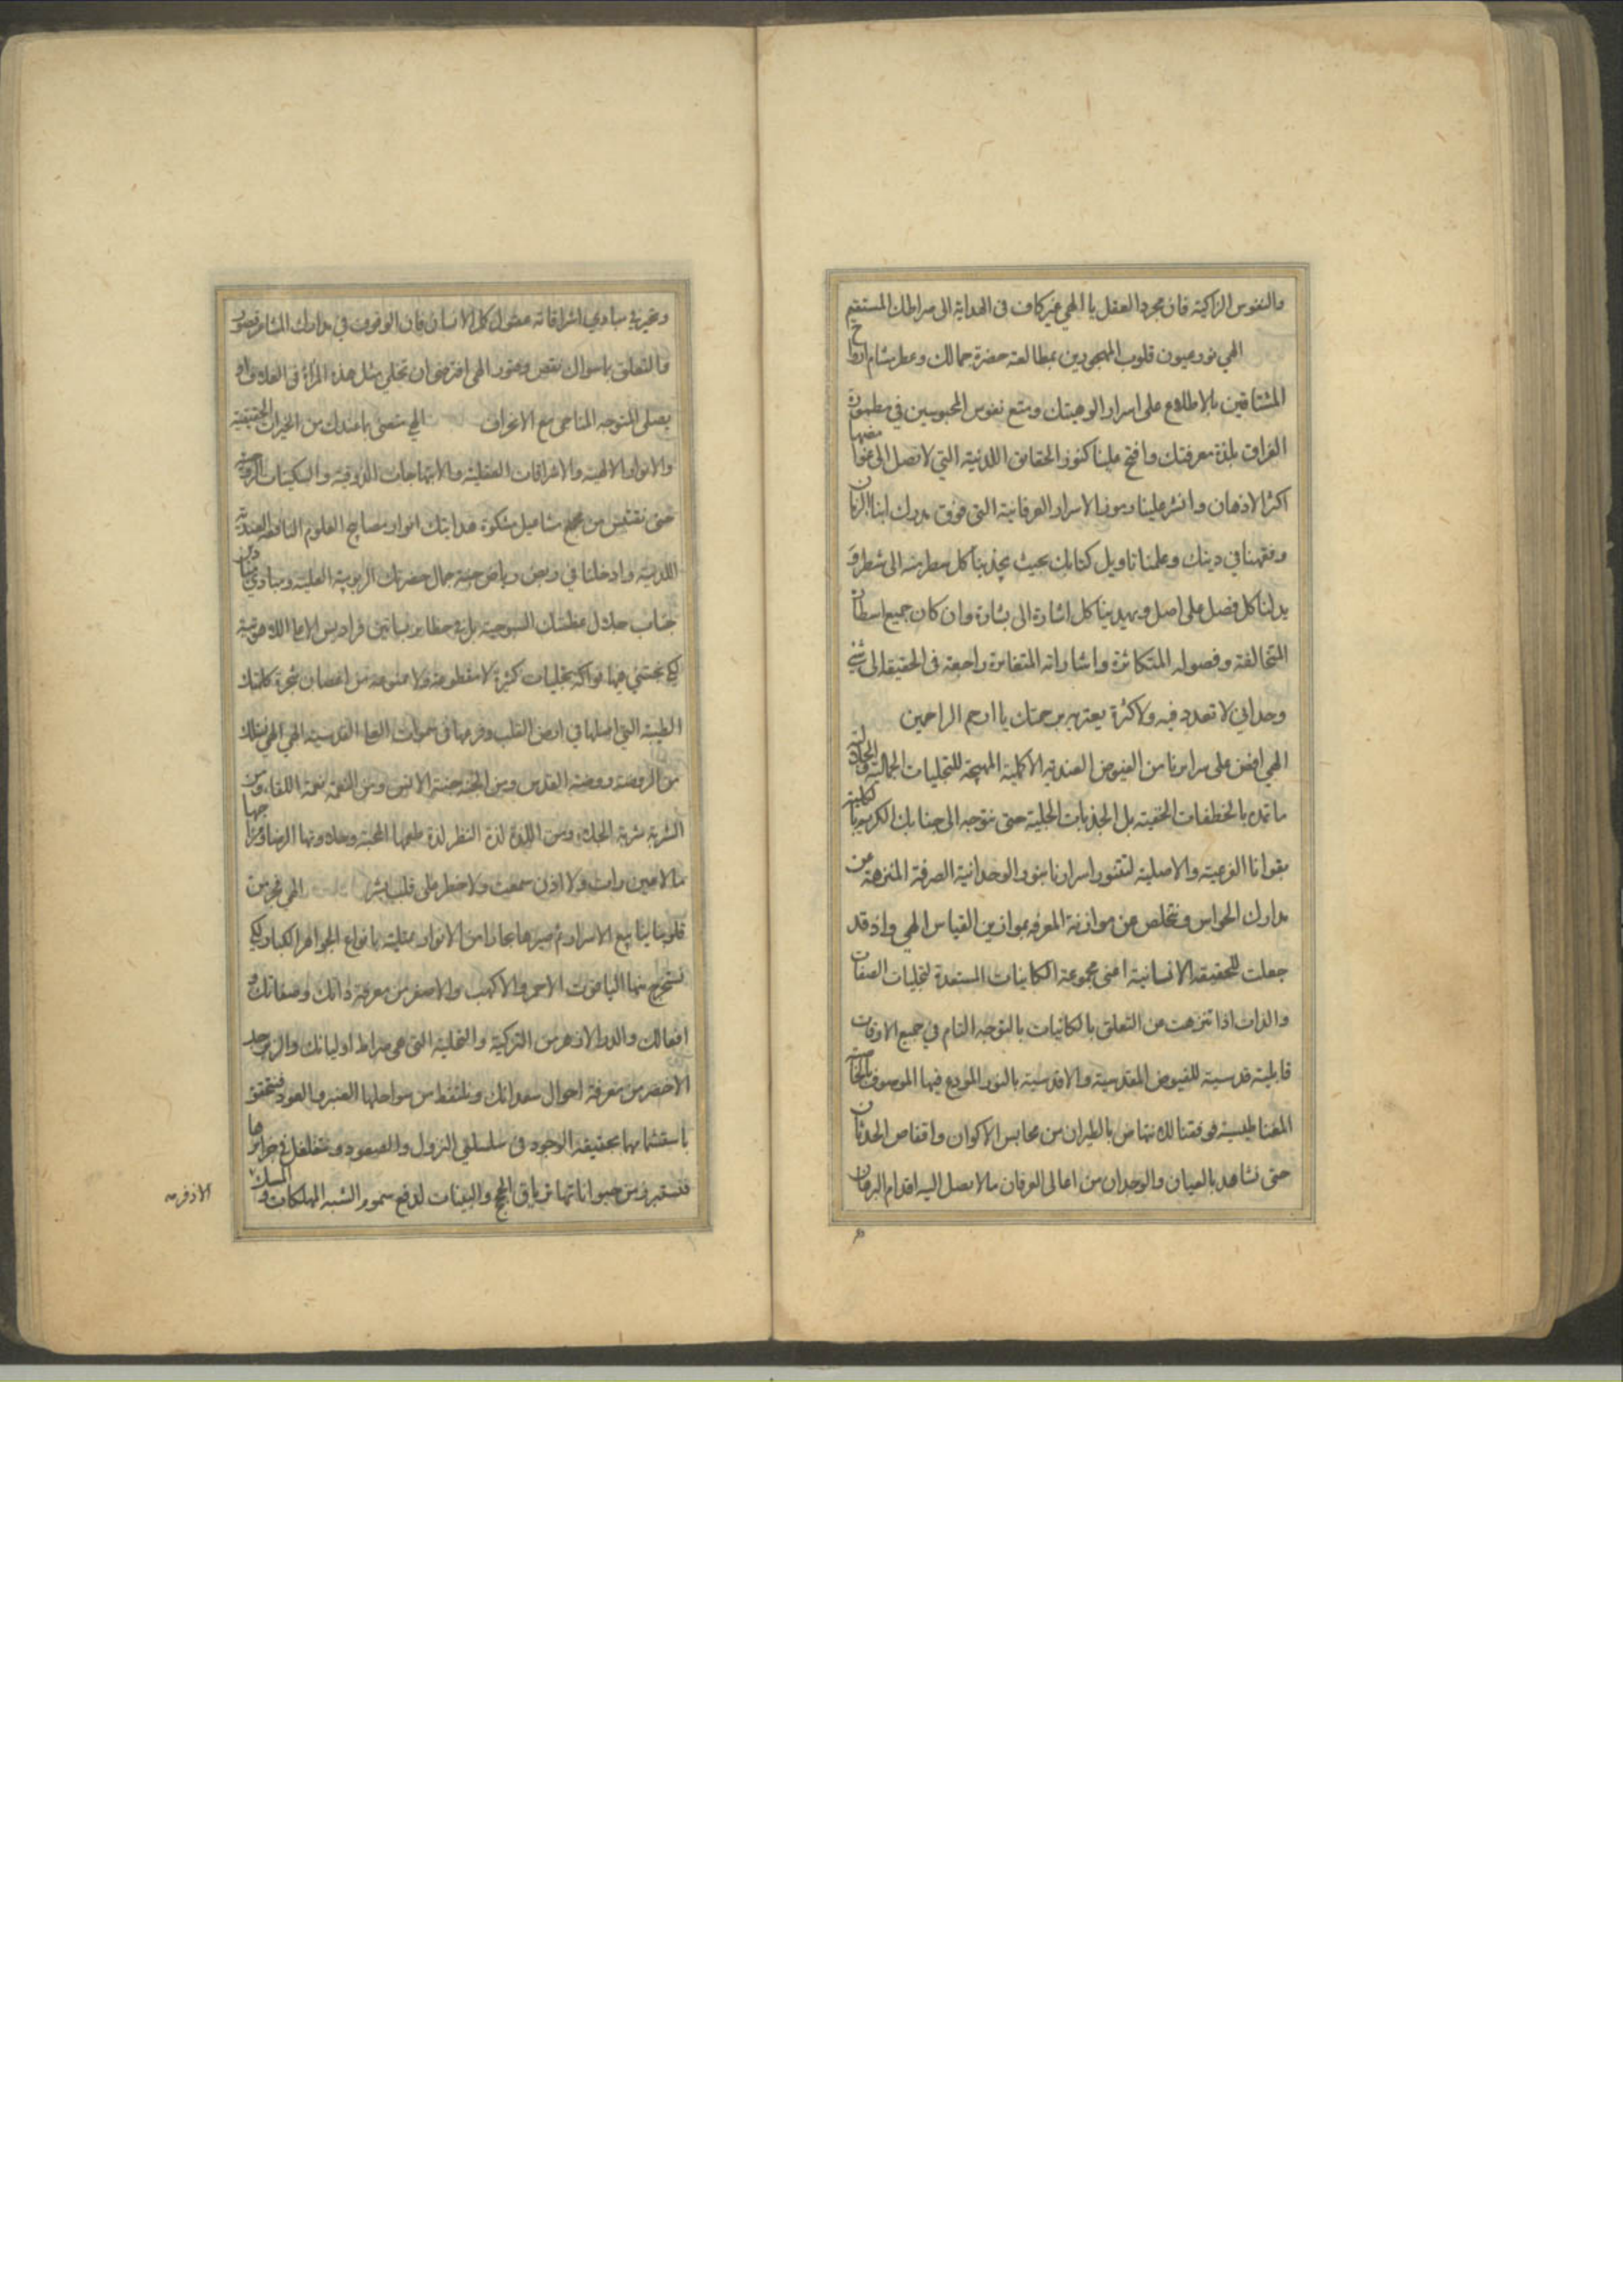 والنفوس الزاكية فان مجرد العقل يا الهي غير كاف فى الهداية الى صراطك المستقيم
الهي نور عيون قلوب المهجورين بمطالعة حضرة جمالك وعطر مشام ارواح
المشتاقين بالاطلاع على اسرار الوهيتك ومتع نفوس المحبوسين في مطمورة
الفراق بلذة معرفتك وافتح علينا كنوز الحقايق اللدنية التي لا تصل الى غوامضها
اكثر الاذهان وانشر علينا رموز الاسرار العرفانية التى فوق مدرك ابنا الزمان
وفقهنا في دينك وعلمنا تاويل كتابك بحيث يجذبنا كل سطر منه الى شطر و
يدلنا كل فصل على اصل ويهدينا كل اشارة الى بشارة وان كان جميع اسطاره
المتخالفة وفصوله المتكاثرة واشاراته المتغايرة راجعة فى الحقيقة الى شئ
وحداني لا تعدد فيه ولا كثرة يعتريه برحمتك يا ارحم الراحمين
الهي افض على سرايرنا من الفيوض العندية الاكملية المهيجة للتجليات الجمالية والجلالية
ما تمد بالخطفات الخفية بل الجذبات الجلية حتى نتوجه الى جنابك الكريم بالكلية
بقوانا الفرعية والاصلية لتتنور اسرارنا بنور الوحدانية الصرفة المنزهة عن
مدارك الحواس ونتخلص عن موازنة المعرفة بموازين القياس الهي واذ قد
جعلت للحقيقة الانسانية اعنى مجموعة الكاينات المستعدة لتجليات الصفات
والذات اذا تنزهت عن التعلق بالكائيات بالتوجه التام في جميع الاوقات
قابلية قدسية للفيوض المقدسية والاقدسية بالنور المودع فيها الموصوف بالخاصة
المغناطيسية فوفقنا للانتهاض بالطيران من محابس الاكوان واقفاص الحدثان
حتى نشاهد بالعيان والوجدان من اعالى العرفان ما لا يصل اليه اقدام البرهان
مبادي اشراقاته كل الانسان فان الوقوف في مدارك المشاعر قصور
والتعلق باسوال نقص وفتور الهي ان تجلى مثل هذه المرآة فى الغلاف او
يصلى المتوجه المناجى مع الانحراف الهي متعنى بما عندك من الخيرات الحقيقية
والانوار الالهية والاشراقات العقلية والابتهاجات الذوقية والسكينات
حتى نقتبس من مشكوة هدايتك انوار مصابيح العلوم النافعة العندية
اللدنية وادخلنا في رياض جنة جمال حضرتك الربوبية العلية
جناب جلال عظمتك السبوحية بل في حظاير بساتين فراديس الاسما اللاهوتية
لكي نجتني فيها فواكه تجليات كثيرة لا مقطوعة ولا ممنوعة من اغصان شجرة كلمتك
الطيبة التي اصلها في ارض القلب وفرعها فى سموات القدسية الهي الهي نسئلك
من الروضة روضة القدس ومن الجنة جنة الانس ومن النعمة نعمة اللقاء ومن
الشربة شربة ومن اللذة لذة النظر لذة طعمها المحبة وحلاوتها الرضا
ما لا عين رات ولا اذن سمعت ولا خطر على قلب بشر الهي فجر من
قلوبنا ينابيع الاسرار ثم صيرها بحارا من الانوار ممتلية بانواع الجواهر الكبار لكي
نستخرج منها الياقوت الاحمر والاكهب والاصفر من معرفة ذاتك وصفاتك و
افعالك والدر الازهر من التزكية والتحلية التى هي صراط اوليائك والزبرجد
الاخضر من معرفة احوال سعدائك ونلتقط من سواحلها العنبر والعود فنتحقق
باستشمامها بحقيقة الوجود فى سلسلتى النزول والصعود ونتغلغل في جزايرها
من حيواناتها ترياق الحجج والبينات لدفع سموم الشبه المهلكات والمسك
الاذفر